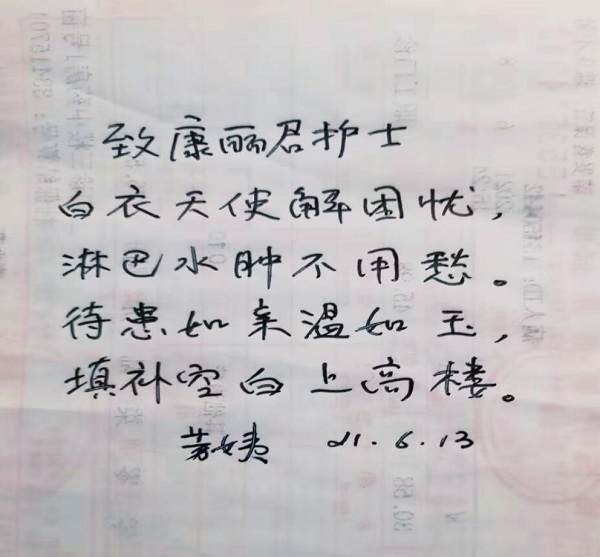 致康丽君护士
白衣天使解困忧，
淋巴水肿不用愁。
待患如亲温如玉，
填补空白上高楼。
21.6.13